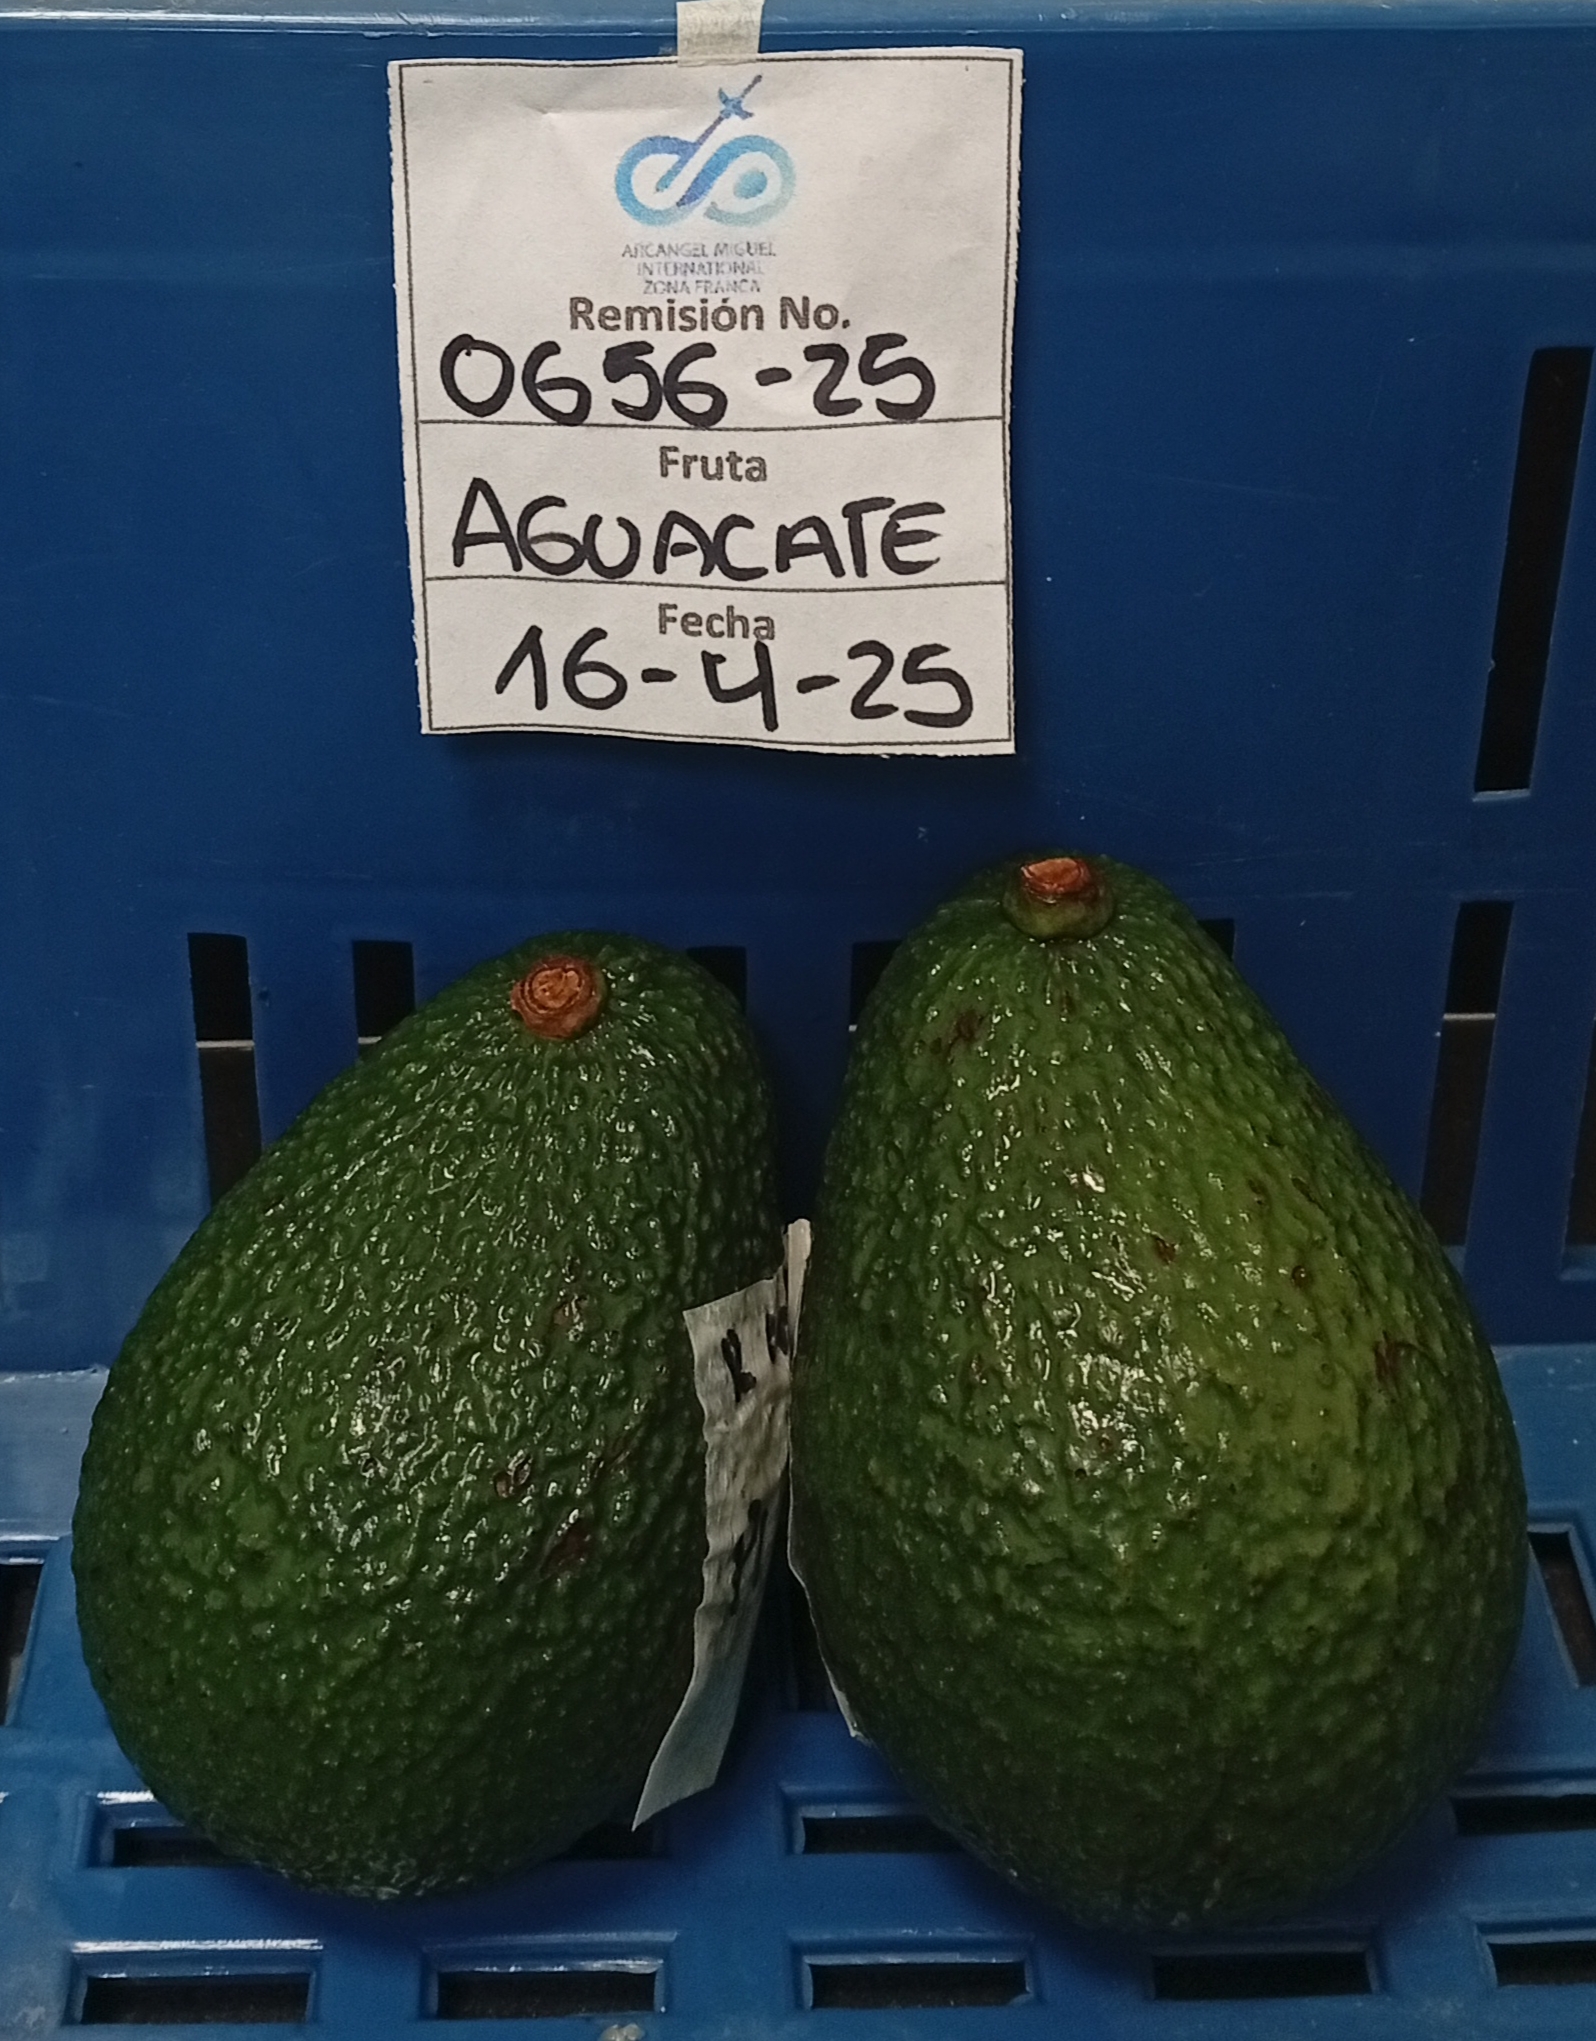 ARCANGEL MIGUEL
INTERNATIONAL
ZONA FRANCA
Remisión No.
0656-25
Fruta
AGUACATE
Fecha
16-4-25
R